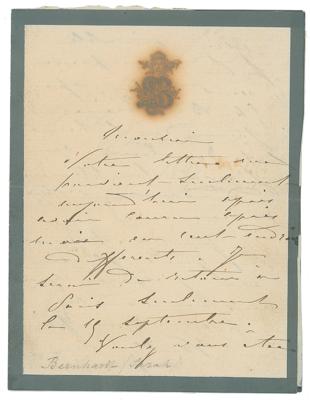 Monsieur
Votre lettre me
parvient seulement
aujourd'hui après
avoir couru après
moi en cent endroits
différents. Je
serai de retour à
Paris seulement
le 15 septembre.
Voulez vous être
Bernhardt (Sarah)